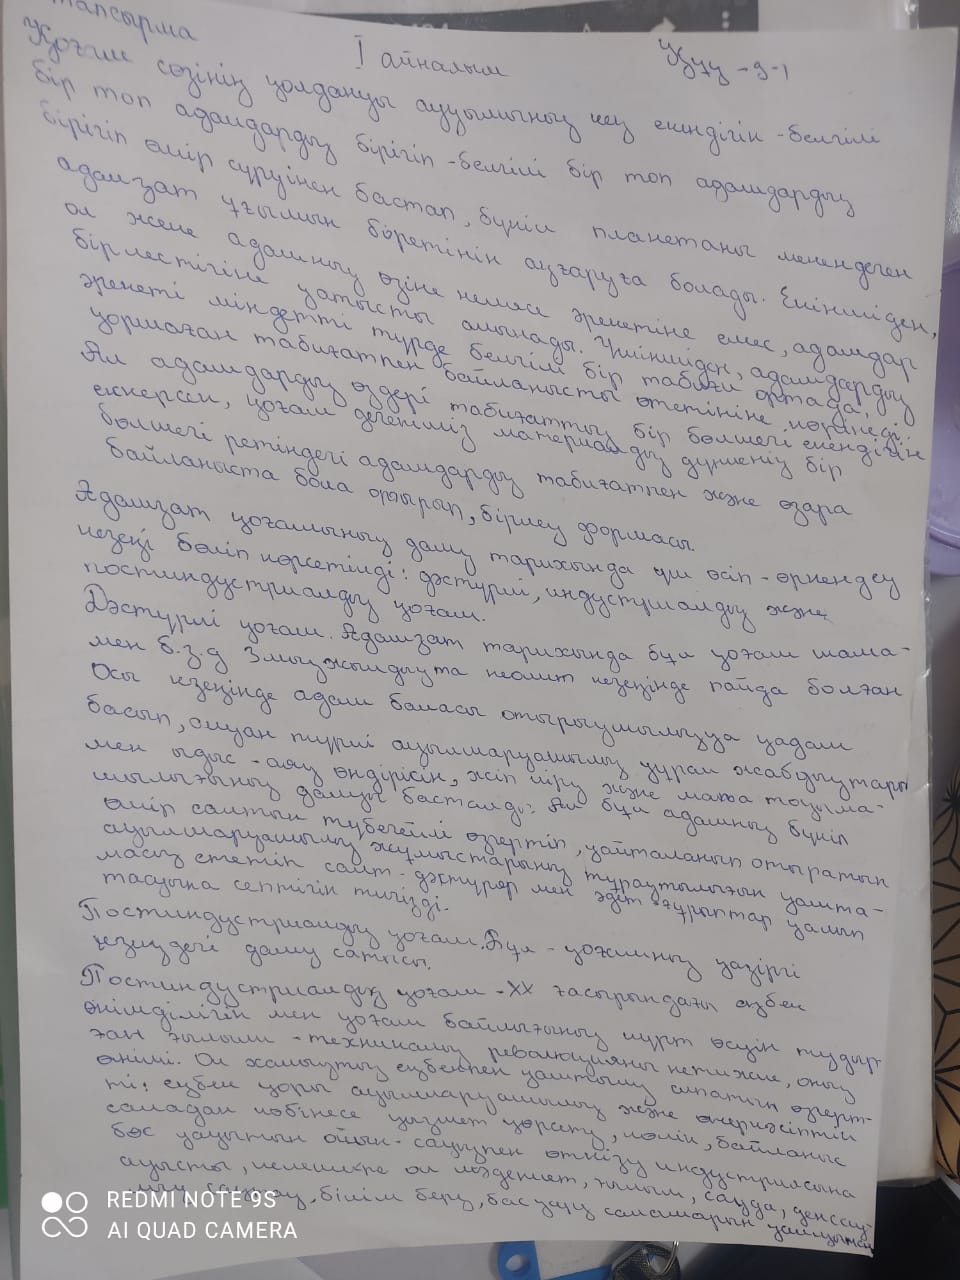 тапсырма
І айналым
Құқұқ-9-1
Қоғам сөзінің қолданқы ауқымының кең екендігін - белгілі
бір топ адамдардың бірігіп - белгілі бір топ адамдардың
бірігіп өмір сүруінен бастап, бүкіл планетаны мекендеген
адамзат ұғымын біретінін аңғаруға болады. Екіншіден,
ол жеке адамның өзіне немесе әрекетіне емес, адамдар
бірлестігіне қатысты алынады. Үшіншіден, адамдардың
әрекеті міндетті түрде белгілі бір табиғи ортада,
қоршаған табиғатпен байланысты өтетініне көрінеді.
Ал адамдардың өздері табиғаттың бір бөлшегі екендігін
ескерсек, қоғам дегеніміз материалдық дүниенің бір
бөлшегі ретіндегі адамдардың табиғатпен және өзара
байланыста бола отырып, бірлеу формасы.
Адамзат қоғамының даму тарихында үш өсіп - өркендеу
кезеңі бөліп көрсетілді: дәстүрлі, индустриалдық және
постиндустриалдық қоғам.
Дәстүрлі қоғам. Адамзат тарихында бұл қоғам шама-
мен б.з.д 3 мыңжылдықта неолит кезеңінде пайда болған
Осы кезеңінде адам баласы отырықшылыққа қадам
басып, алуан түрлі ауылшаруашылық құрал жабдықтары
мен ыдыс - аяқ өндірісін, жіп иіру және мата тоқыма-
шылығының дамуы басталды: Ал бұл адамның бүкіл
өмір салтын түбегейлі өзгертіп, қайталанып отыратын
ауылшаруашылық жұмыстарының тұрақтылығын қашта-
масыз ететін салт - дәстүрлер мен әдет - ғұрыптар қалып
тасуына септігін тигізді.
Постиндустриалдық қоғам. Бұл - қоғамның қазіргі
кезіндегі даму сатысы.
Постиндустриалдық қоғам - XX ғасырындағы еңбек
өнімділігін мен қоғам байлығының күрт өсуін тудыр-
ған ғылыми - техникалық революцияның нәтиже, оның
өнімі. Ол халықтың еңбекпен қаштылу сипатын өзгерт-
ті: еңбек қоры ауылшаруашылық және өнеркәсіптік
саладан көбінесе қызмет көрсету, көлік, байланыс
бос уақытын ойын - сауықпен өткізу индустриясына
ауысты, келешекте ол мәдениет, ғылым, сауда, денсау-
лық сақтау, білім беру, басқару салаларын қамтымақ
REDMI NOTE 9S
AI QUAD CAMERA